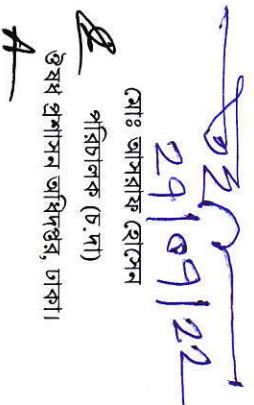 29|09|22
মোঃ আসরাফ হোসেন
পরিচালক (চ.দা)
ঔষধ প্রশাসন অধিদপ্তর, ঢাকা।